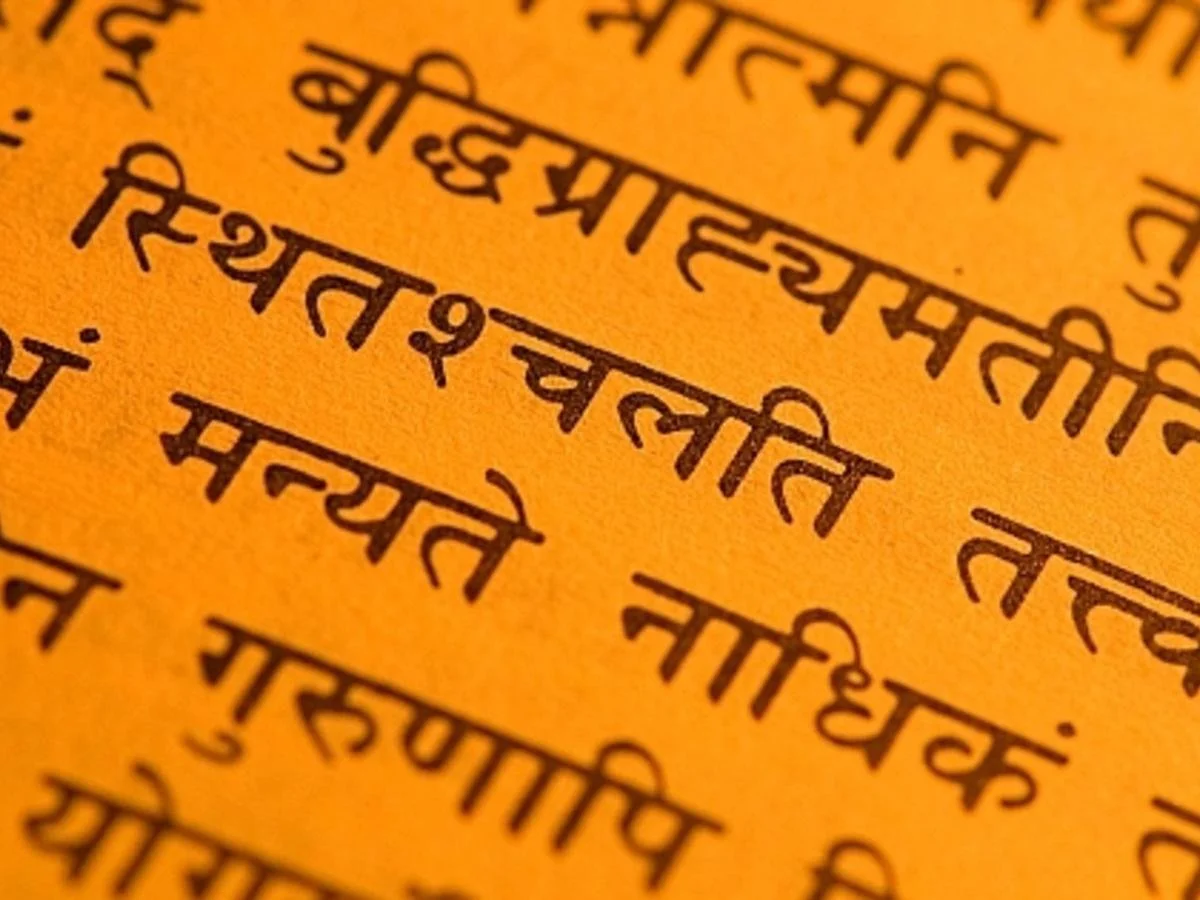 त्रात्मनि तु
बुद्धिग्राह्यमतीन्
स्थितश्चलति तत्त्व
भं मन्यते नाधिकं त
न गुरुणापि वि
योग